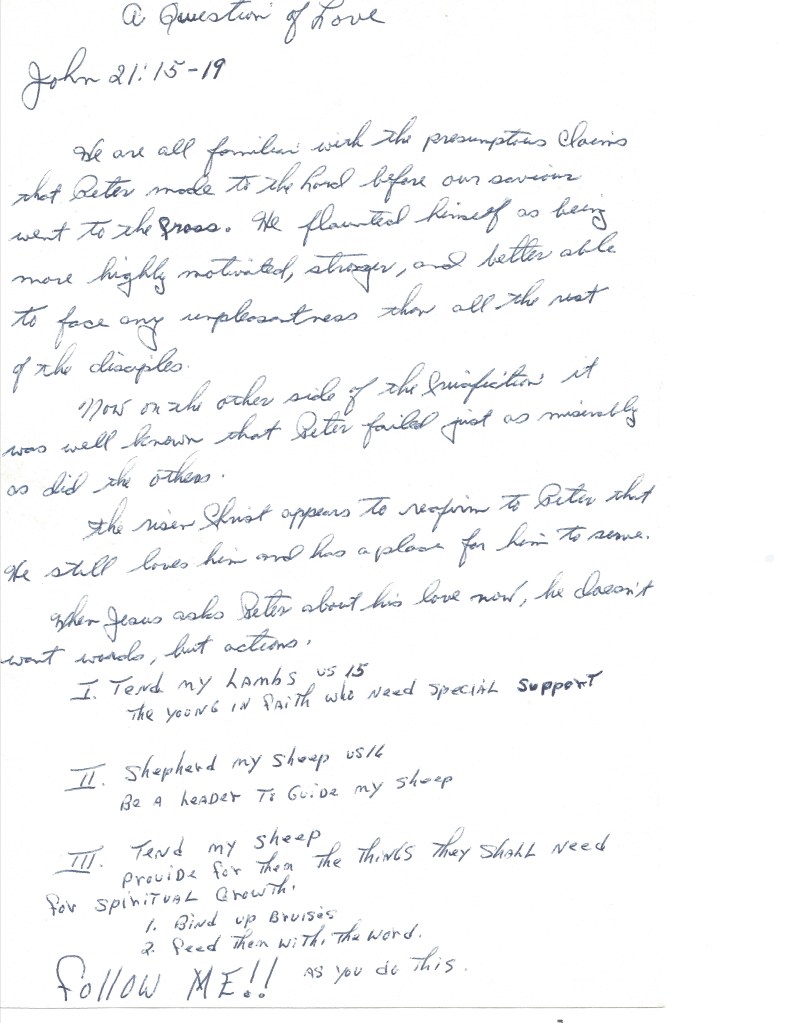 A Question of Love
John 21:15-19
We are all familiar with the presumptous claims
that Peter made to the Lord before our saviour
went to the Cross. He flaunted himself as being
more highly motivated, stroger, and better able
to face any unpleasantness than all the rest
of the disciples.
Now on the other side of the Crusifiction it
was well known that Peter failed just as miserably
as did the others.
The risen Christ appears to reafirm to Peter that
He still loves him and has a place for him to serve.
When Jesus asks Peter about his love now, he doesn't
want words, but actions.
I. Tend my Lambs vs 15
The young in faith who need special support
II. Shepherd my sheep vs 16
Be a leader To Guide my sheep
III. Tend my sheep
Provide for them the things they shall need
for spiritual Growth.
1. Bind up Bruises
2. Feed them with, the word.
Follow ME!! As you do this.